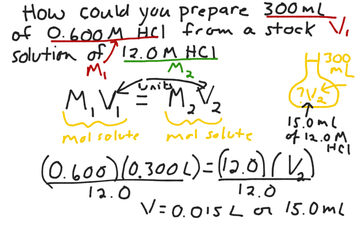 How could you prepare 300 mL
of 0.600 M HCl from a stock V₁
solution of 12.0 M HCl
M₁ M₂
units
M₁V₁ = M₂V₂
mol solute mol solute
300
mL
?V₂
15.0 mL
of 12.0 M
HCl
(0.600)(0.300 L) = (12.0)(V₂)
12.0 12.0
V = 0.015 L or 15.0 mL